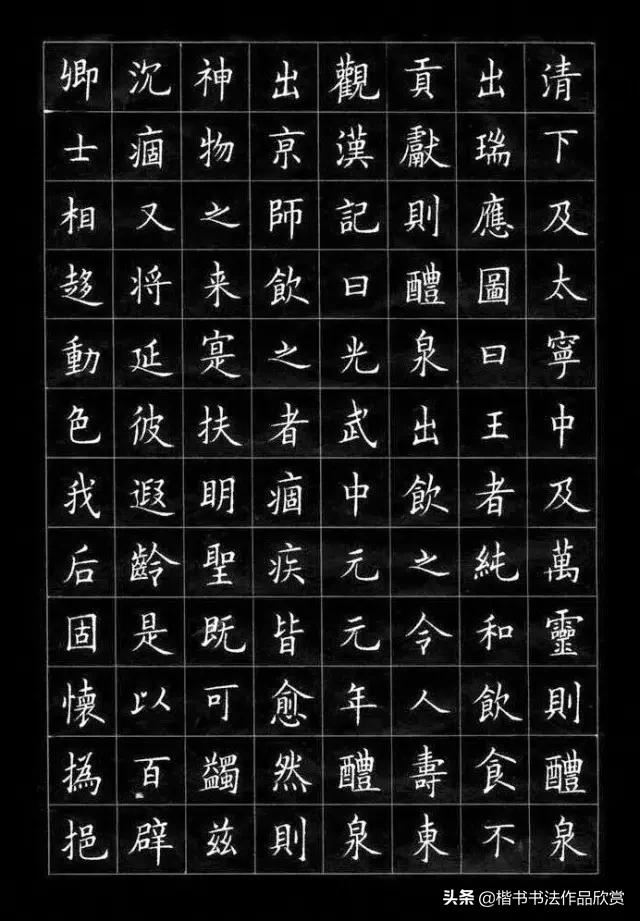 清下及太寧中及萬靈則醴泉
出瑞應圖曰王者純和飲食不
貢獻則醴泉出飲之令人壽東
觀漢記曰光武中元元年醴泉
出亰師飲之者痼疾皆愈然則
神物之来寔扶明聖既可蠲兹
沉痼又将延彼遐齡是以百辟
卿士相趍動色我后固懷撝挹
头条@楷书书法作品欣赏